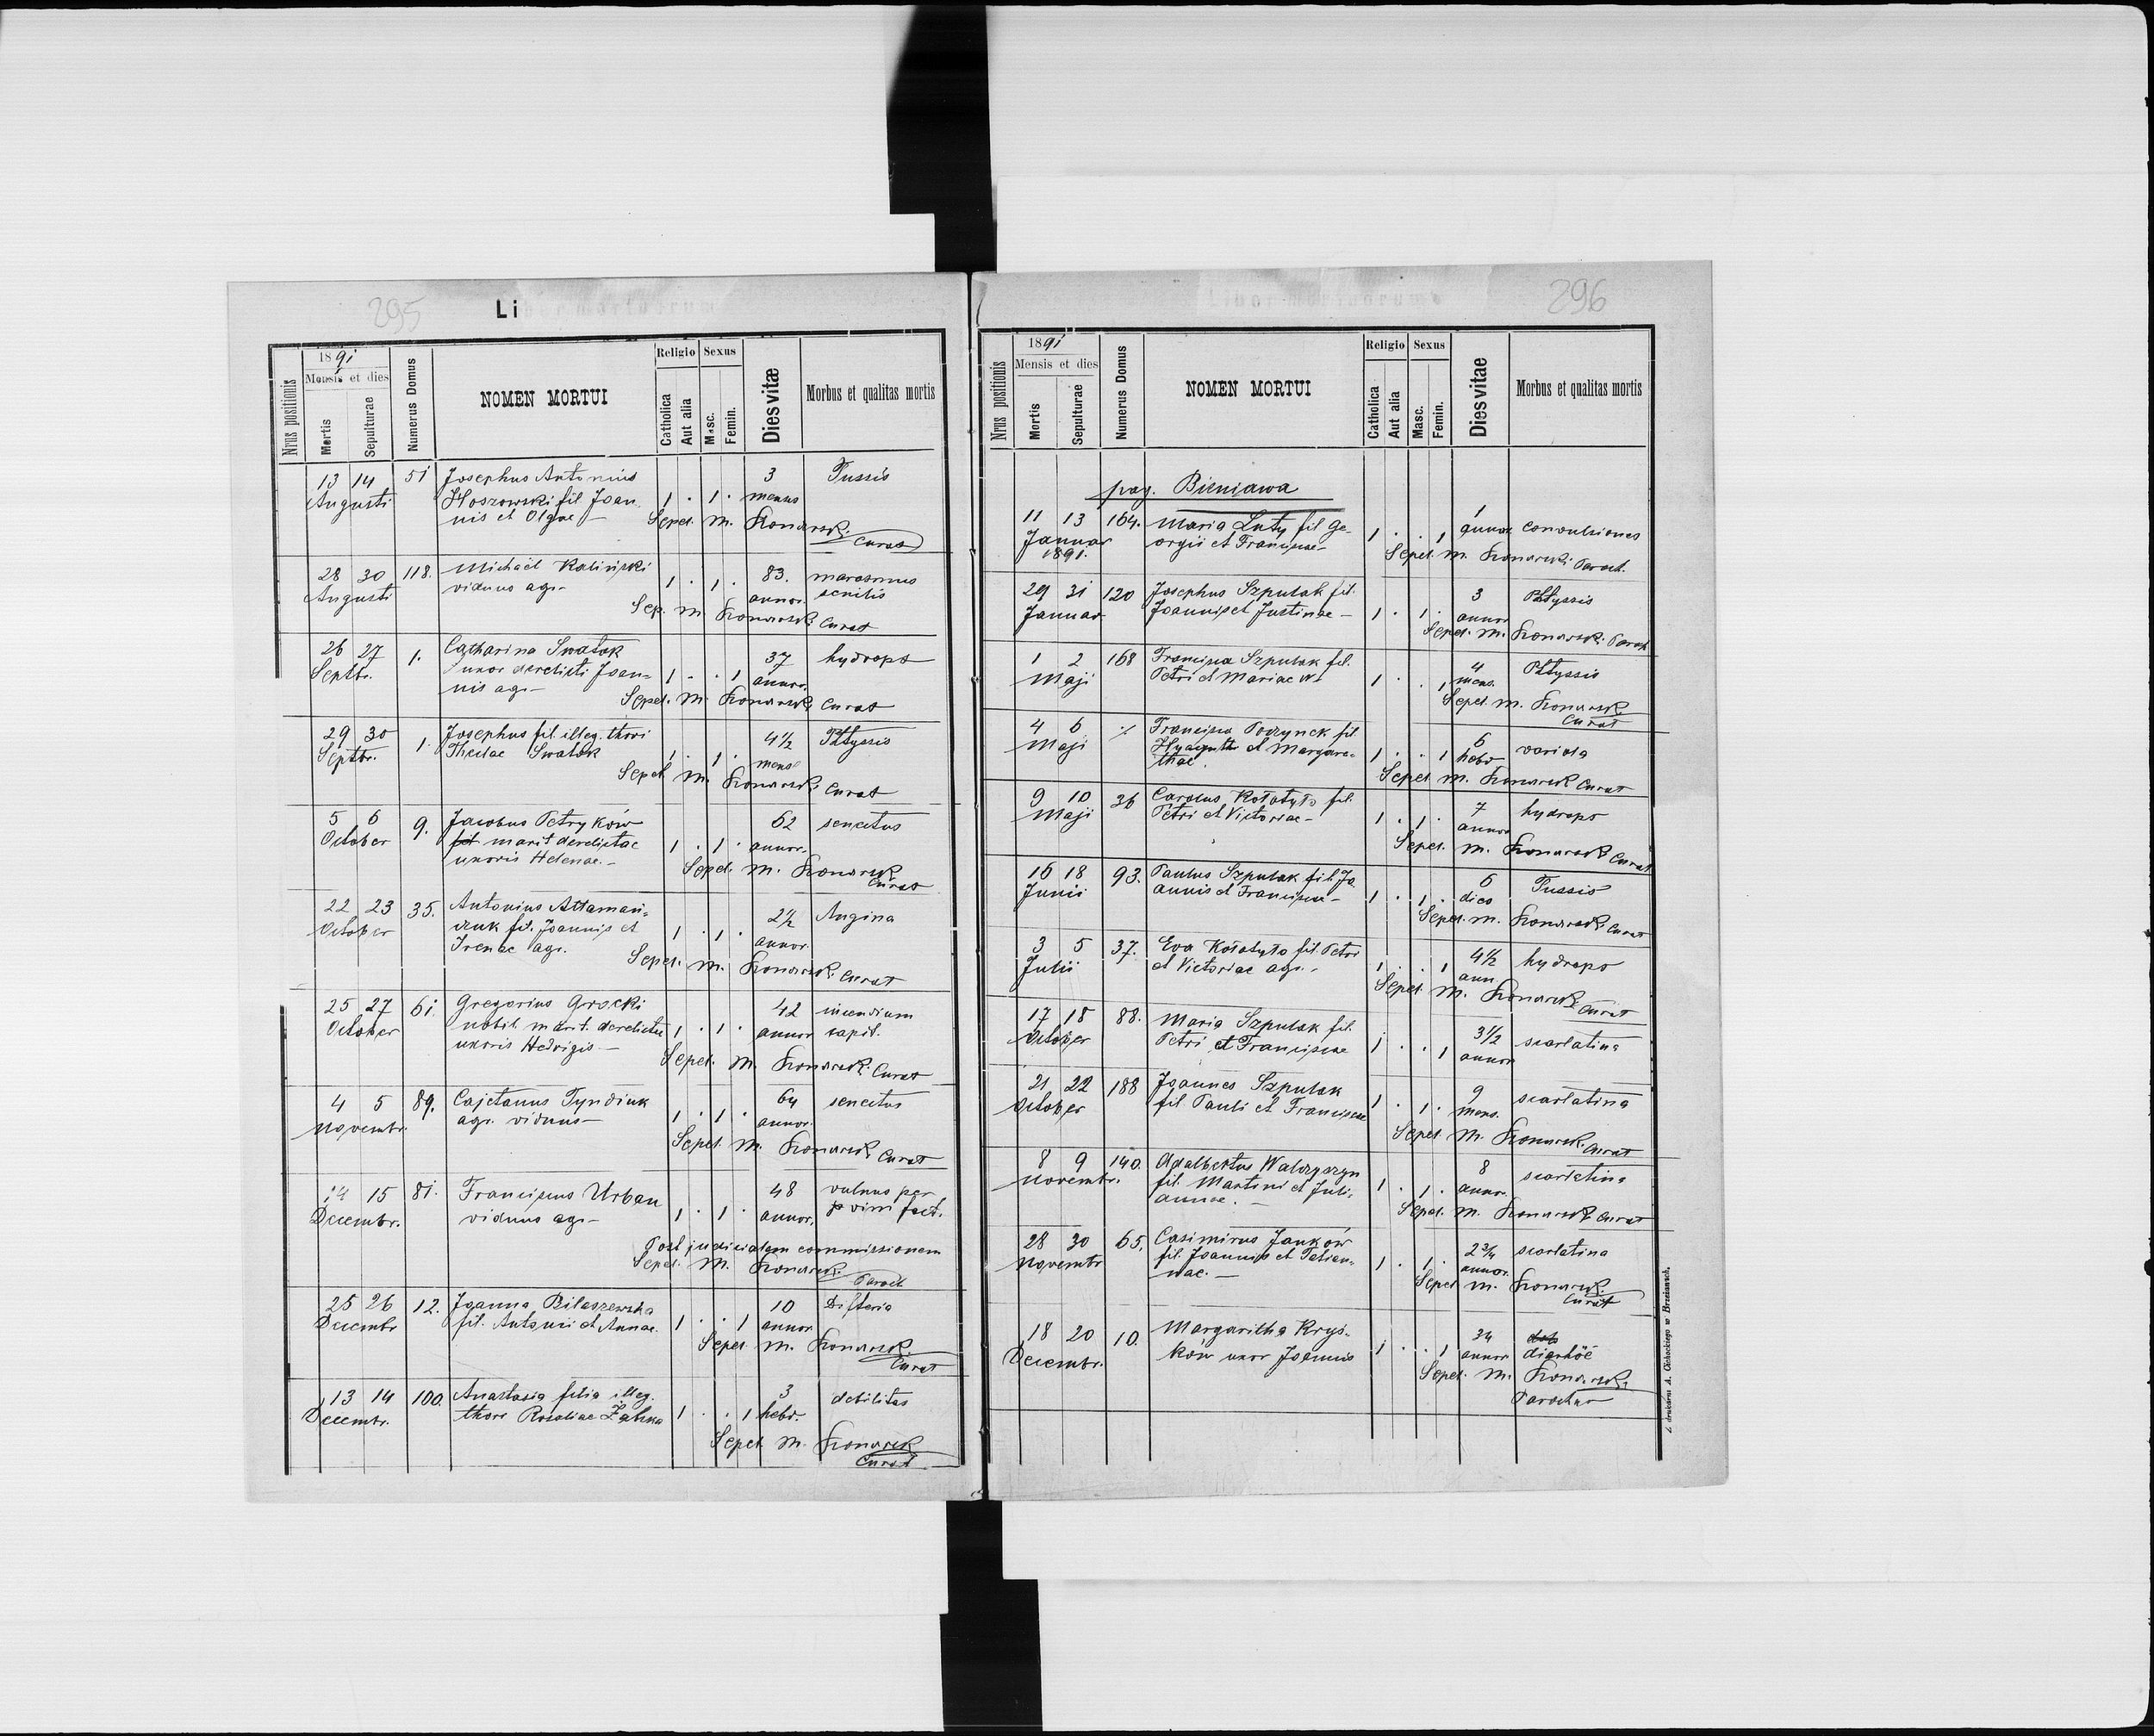 295
Li
1891
Mensis et dies
Nrus positionis
Mortis
Sepulturae
Numerus Domus
NOMEN MORTUI
Religio
Catholica
Aut alia
Sexus
Masc.
Femin.
Dies vitæ
Morbus et qualitas mortis
13 14 51 Josephus Antonius 3 Tussis
Augusti Hoszowski fil. Joan 1 . 1 . menses
nis et Olgae – Sepel. M. Konarsk.
Curat
28 30 118. Michaël Kaliński 83. marasmus
Augusti viduus agr. 1 . 1 . annor. senilis
Sep. M. Konarsk. Curat
26 27 1. Catharina Swatok 37 hydrops
Septbr. uxor derelicti Joan- 1 . . 1 annor.
nis agr. – Sepel. M. Konarsk. Curat
29 30 1. Josephus fil. illeg. thori 4½ Phtyssis
Septbr. Theclae Swatok 1 . 1 . mens.
Sepel M. Konarsk. Curat
5 6 9. Jacobus Petryków 62 senectus
October fil marit derelictae 1 . 1 . annor.
uxoris Helenae. – Sepel. M. Konarsk
Curat
22 23 35. Antonius Attaman- 2½ Angina
October czuk fil. Joannis et 1 . 1 . annor.
Irenae agr. Sepel. M. Konarsk. Curat
25 27 61. Gregorius Grocki 42 incendium
October nobil. marit. derelictae 1 . 1 . annor capit.
uxoris Hedvigis – Sepel. M. Konarsk. Curat
4 5 89. Cajetanus Tyndiuk 64 senectus
Novembr. agr. viduus – 1 . 1 . annor.
Sepel. M. Konarsk. Curat
14 15 81. Franciscus Urban 48 vulnus per
Decembr. viduus agr. – 1 . 1 . annor. vim fact.
Post judicialem commissionem
Sepel. M. Konarsk.
Paroch
25 26 12. Joanna Bilaszewska 10 Difteria
Decembr fil. Antonii et Annae. 1 . . 1 annor
Sepel M. Konarsk.
Curat
13 14 100. Anastasia filia illeg. 3 debilitas
Decembr. thori Rosaliae 1 . . 1 hebd.
Sepel M. Konarsk
Curat
296
1891
Mensis et dies
Nrus positionis
Mortis
Sepulturae
Numerus Domus
NOMEN MORTUI
Religio
Catholica
Aut alia
Sexus
Masc.
Femin.
Dies vitae
Morbus et qualitas mortis
pag. Bieniawa
11 13 164. Maria Luty fil Ge- 1
Januar orgii et Franciscae – 1 . . 1 annor convulsiones
1891. Sepel. M. Konarsk. Paroch.
29 31 120 Josephus Szpulak fil. 3 Phtyssis
Januar Joannis et Justinae – 1 . 1 . annor
Sepel. M. Konarsk. Paroch
1 2 168 Francisca Szpulak fil. 4 Phtyssis
Maji Petri et Mariae 1 . . 1 mens.
Sepel. M. Konarsk
Curat
4 6 ./. Francisca fil
Maji Hyacynthi et Margare- 1 . . 1 6 hebd variola
thae. Sepel M. Konarsk Curat
9 10 36 Carolus Kołotyło fil. 7 hydrops
Maji Petri et Victoriae – 1 . 1 . annor
Sepel. M. Konarsk Curat
16 18 93. Paulus Szpulak fil. Jo 6 Tussis
Junii annis et Franciscae – 1 . 1 . dies
Sepel. M. Konarsk. Curat
3 5 37. Eva Kołotyło fil. Petri 4½ hydrops
Julii et Victoriae agr. – 1 . . 1 ann.
Sepel M. Konarsk Curat
17 18 88. Maria Szpulak fil. 3½ scarlatina
October Petri et Franciscae 1 . . 1 annor
21 22 188 Joannes Szpulak 9 scarlatina
October fil. Pauli et Franciscae 1 . 1 . mens.
Sepel. M. Konarsk. Curat
8 9 140. Adalbertus Walczyszyn 8 scarlatina
Novembr. fil. Martini et Juli- 1 . 1 . annor.
annae. – Sepel. M. Konarsk Curat
28 30 65. Casimirus Janków 2¾ scarlatina
Novembr fil. Joannis et Tatian- 1 . 1 . annor.
nae. – Sepel M. Konarsk.
Curat
18 20 10. Margaritha Krys- 34
Decembr. ków uxor Joannis 1 . . 1 annor diarhöe
Sepel. M. Konarsk.
Parochus
Z drukarni A. Cichockiego w Brzeżanach.